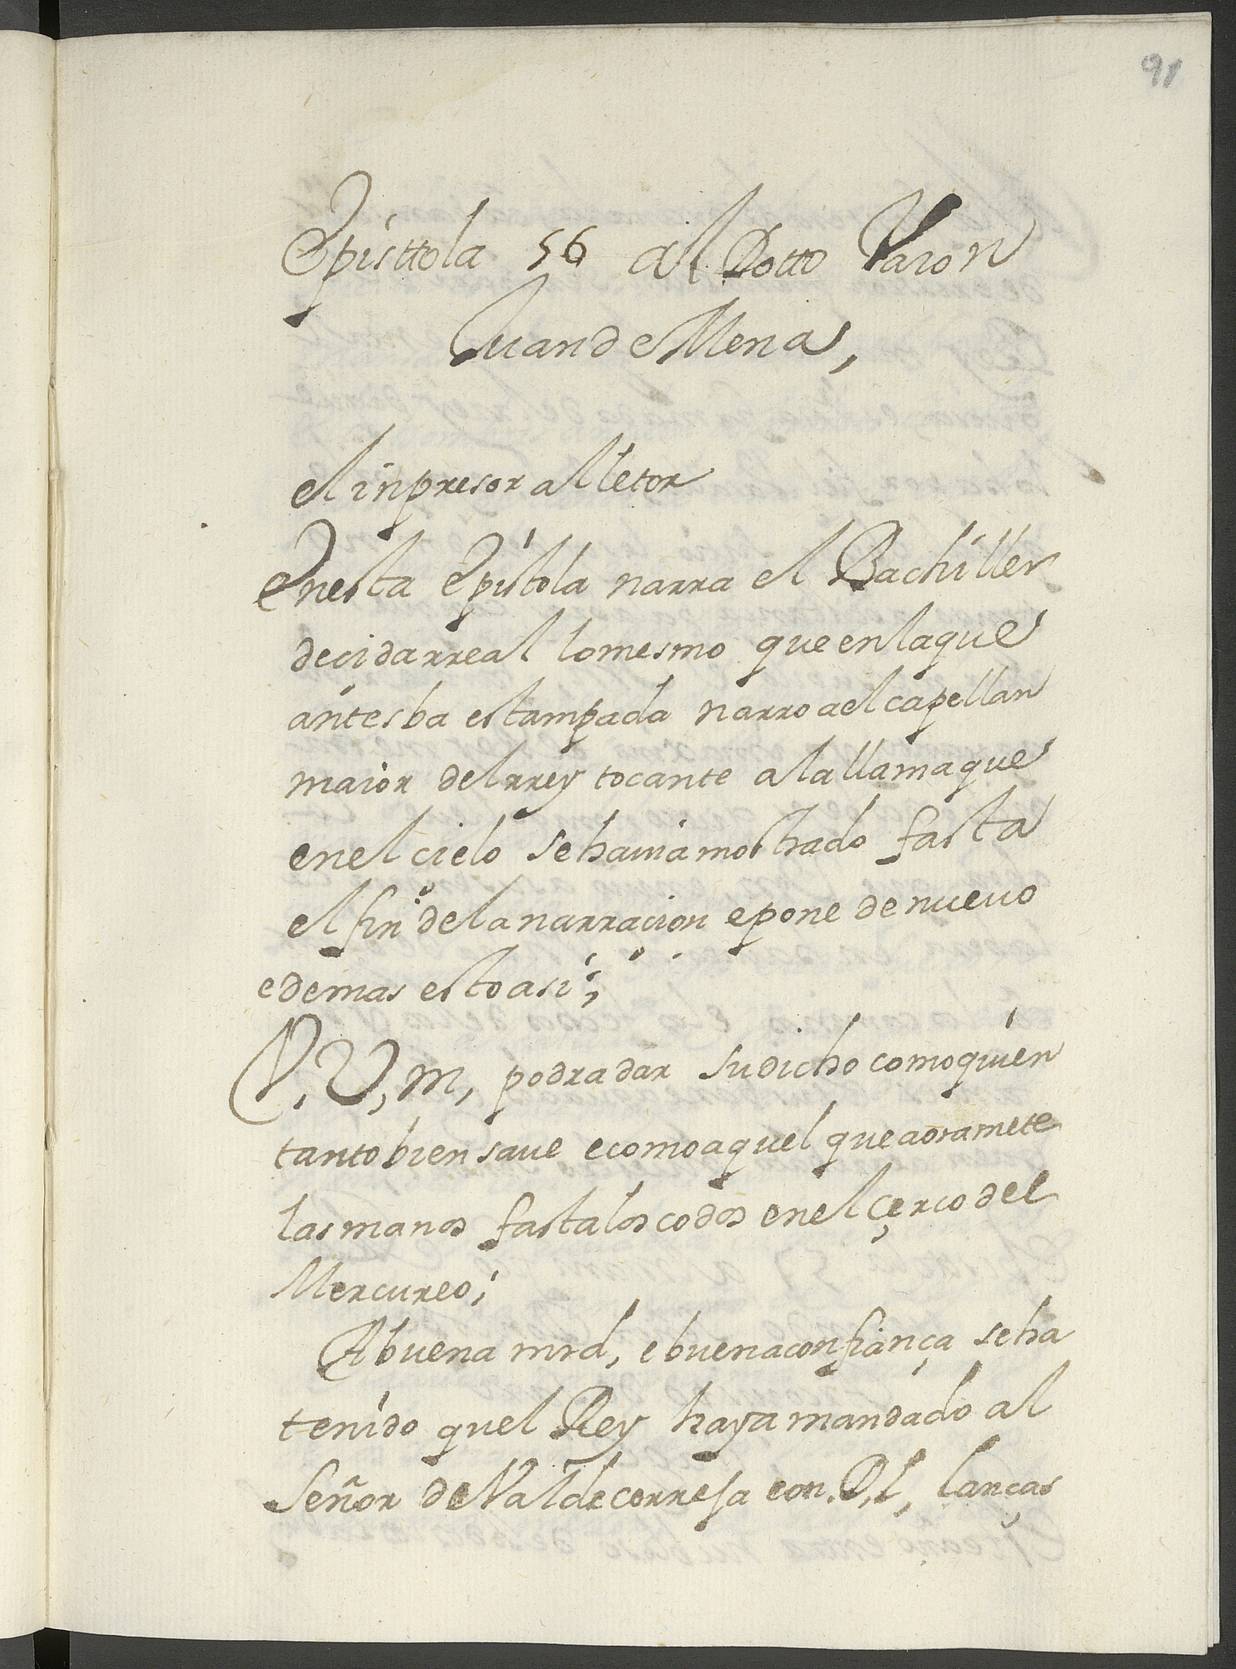 91
Epísttola 56 al Dotto Varon
Juan de Mena,
el inpresor al letor
Enesta Epístola narra el Bachiller
decidarreal lo mesmo que en la que
antes ba estampada narro a el capellan
maior del rrey tocante a la llama que
en el cielo se havia mostrado fasta
el fin de la narracion e pone de nuevo
e demas esto asi;
V, m, podra dar su dicho como quien
tanto bien save e como aquel que aora mete
las manos fasta los codos en el çerco del
Mercureo;
A buena mrd, e buena confiança se ha
tenido quel Rey haya mandado al
Señor de Valdecorneja con. D, l, lanças